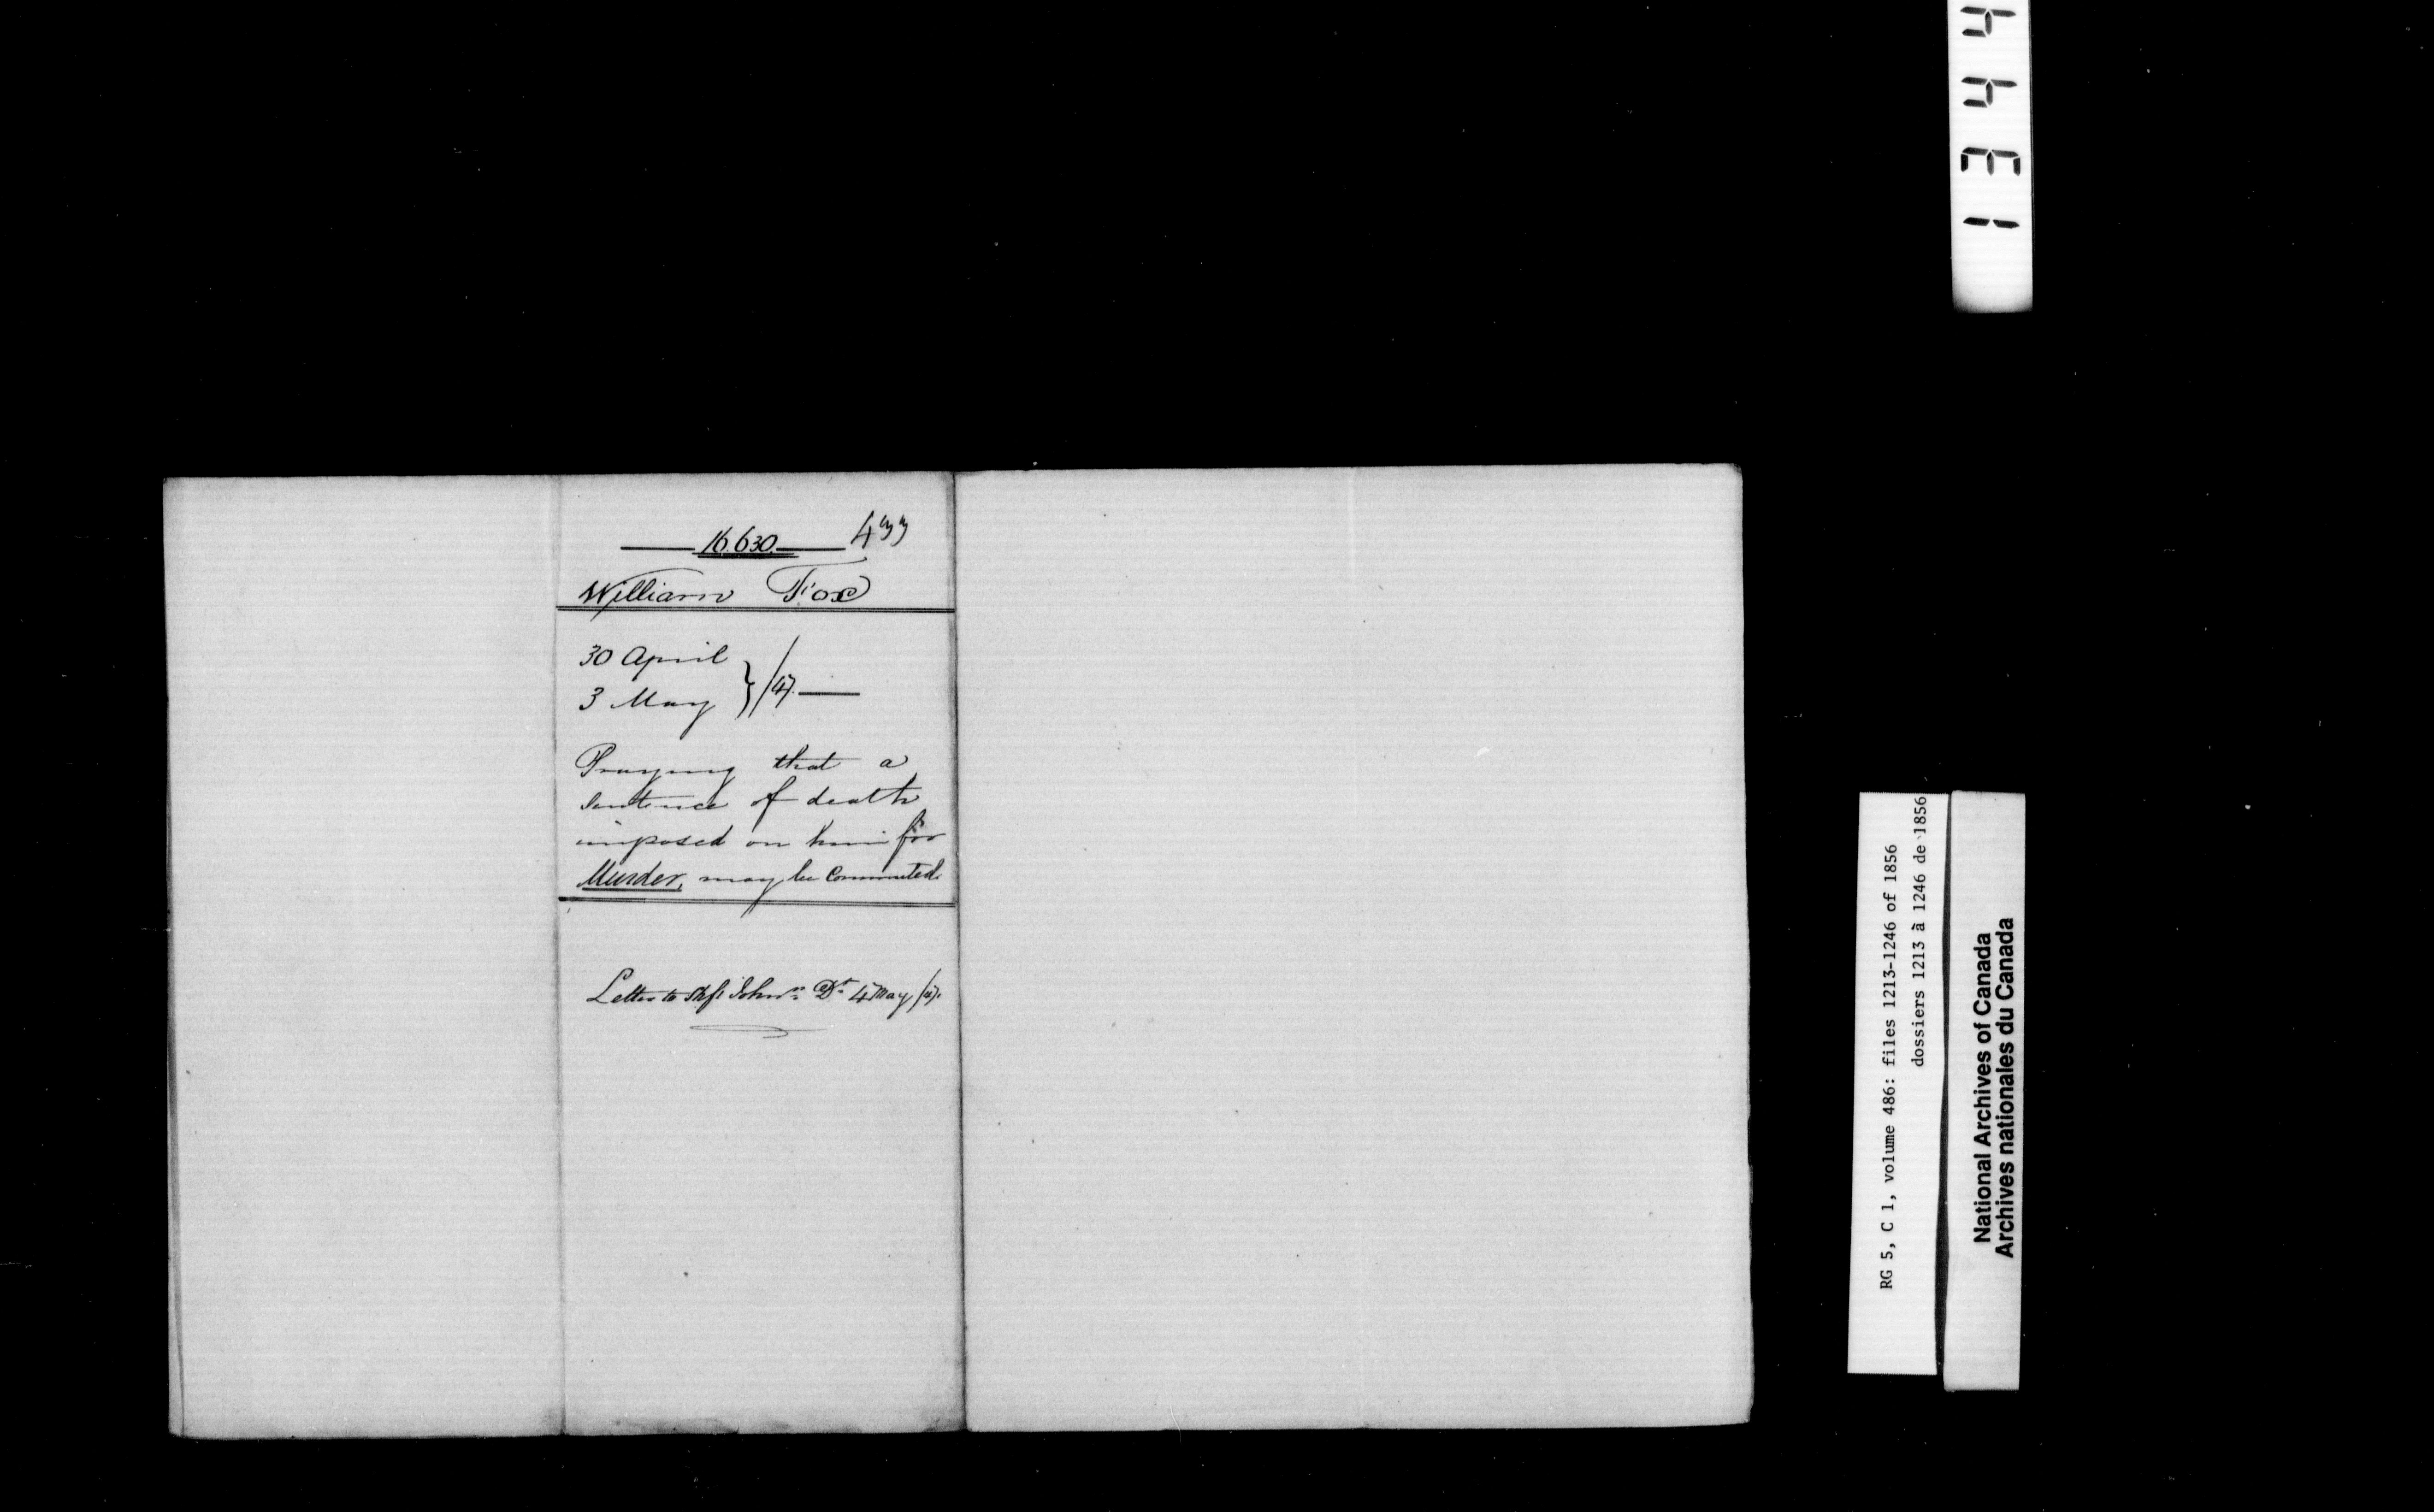 16.630
William Fox
30 April
3 May } /47.
Praying that a
Sentence of death
imposed on him for
Murder, may be Commuted.
Letter to Shff Johnn Dt 4 May /47.
4431
RG 5, C 1, volume 486: files 1213-1246 of 1856
dossiers 1213 à 1246 de 1856
National Archives of Canada
Archives nationales du Canada